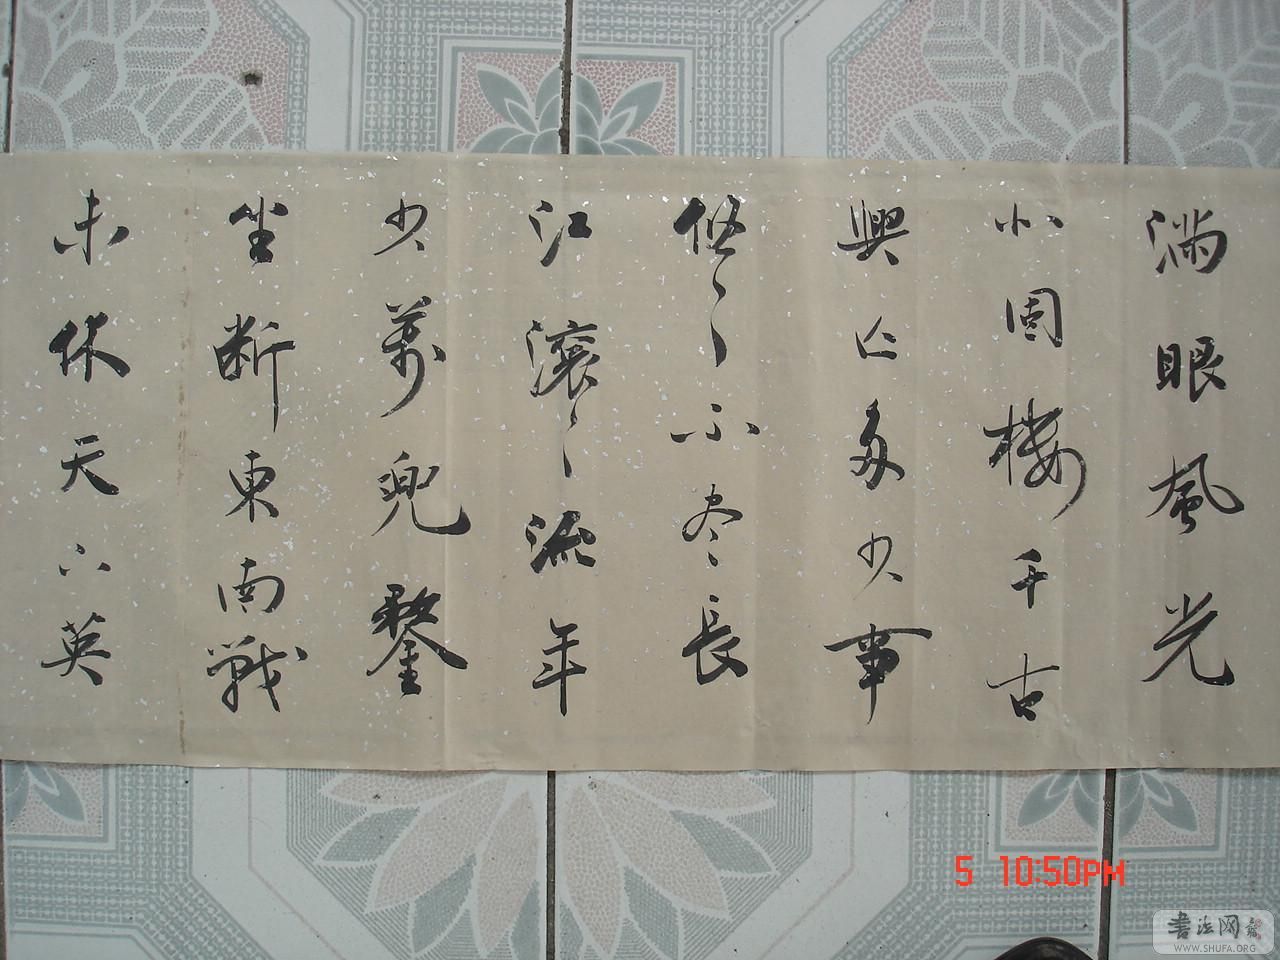 满眼風光
北固楼千古
興亡多少事
悠〻不尽長
江滚〻流年
少萬兜鍪
坐断東南戰
未休天下英
5 10:50PM
書法网
WWW.SHUFA.ORG